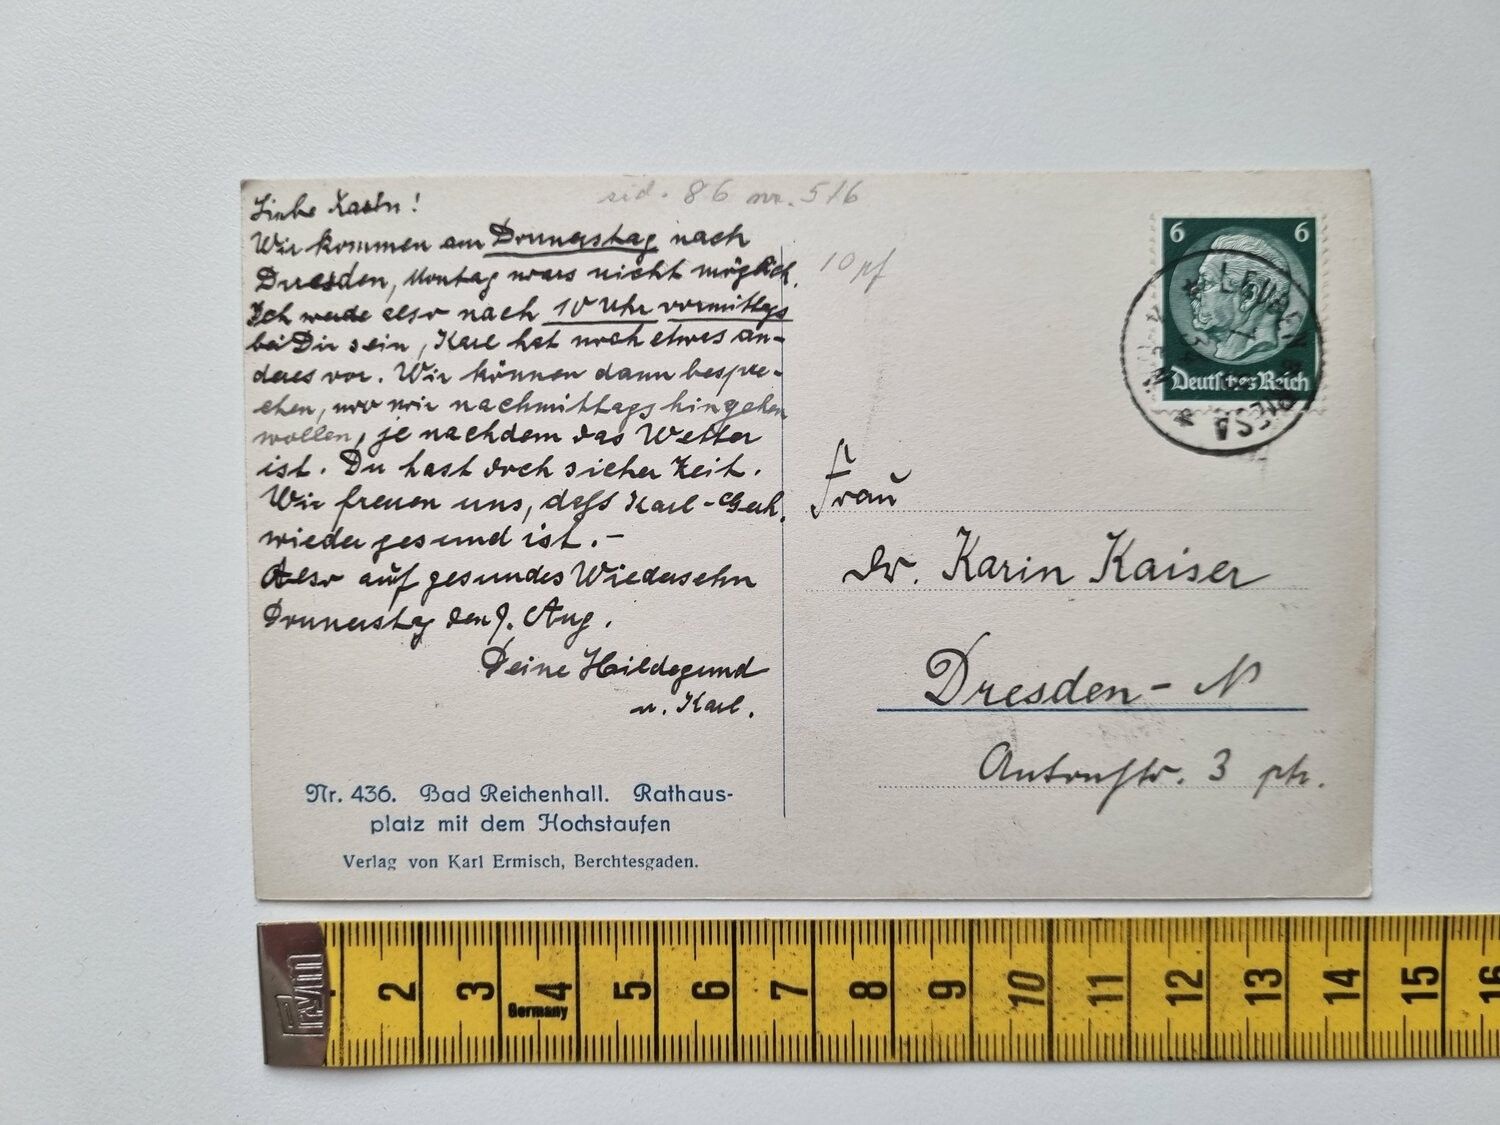 Liebe Karin!
Wir kommen am Donnerstag nach
Dresden, Montag wars nicht möglich.
Ich werde also nach 10 Uhr vormittgs
bei Dir sein, Karl hat noch etwas an-
deres vor. Wir können dann bespre-
chen, wo wir nachmittags hingehen
wollen, je nachdem das Wetter
ist. Du hast doch sicher Zeit.
Wir freuen uns, daß Karl-Gerh.
wieder gesund ist.-
Also auf gesundes Wiedersehn
Donnerstag den 9. Aug.
Deine Hildegund
u. Karl.
Nr. 436. Bad Reichenhall. Rathaus-
platz mit dem Hochstaufen
Verlag von Karl Ermisch, Berchtesgaden.
86 nr. 516
10 pf
6 6
Deutsches Reich
RIESA
Frau
Dr. Karin Kaiser
Dresden - N
3 ptr.
2 3 4 5 6 7 8 9 10 11 12 13 14 15 16
Germany